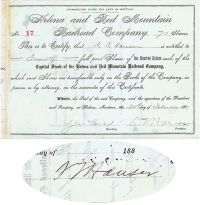 INCORPORATED UNDER THE LAWS OF MONTANA
Helena and Red Mountain
Railroad Company.
No. 17 70 Shares
This is to Certify, that S. T. Hauser is entitled to
Seventy full paid Shares of One Hundred Dollars each of the
Capital Stock of the Helena and Red Mountain Railroad Company,
which said Shares are transferable only on the Books of the Company, in
person or by attorney, on the surrender of this Certificate.
Witness, the Seal of the said Company, and the signatures of the President
and Secretary, at Helena, Montana, the 20th day of February 188
S T Hauser
188
S T Hauser